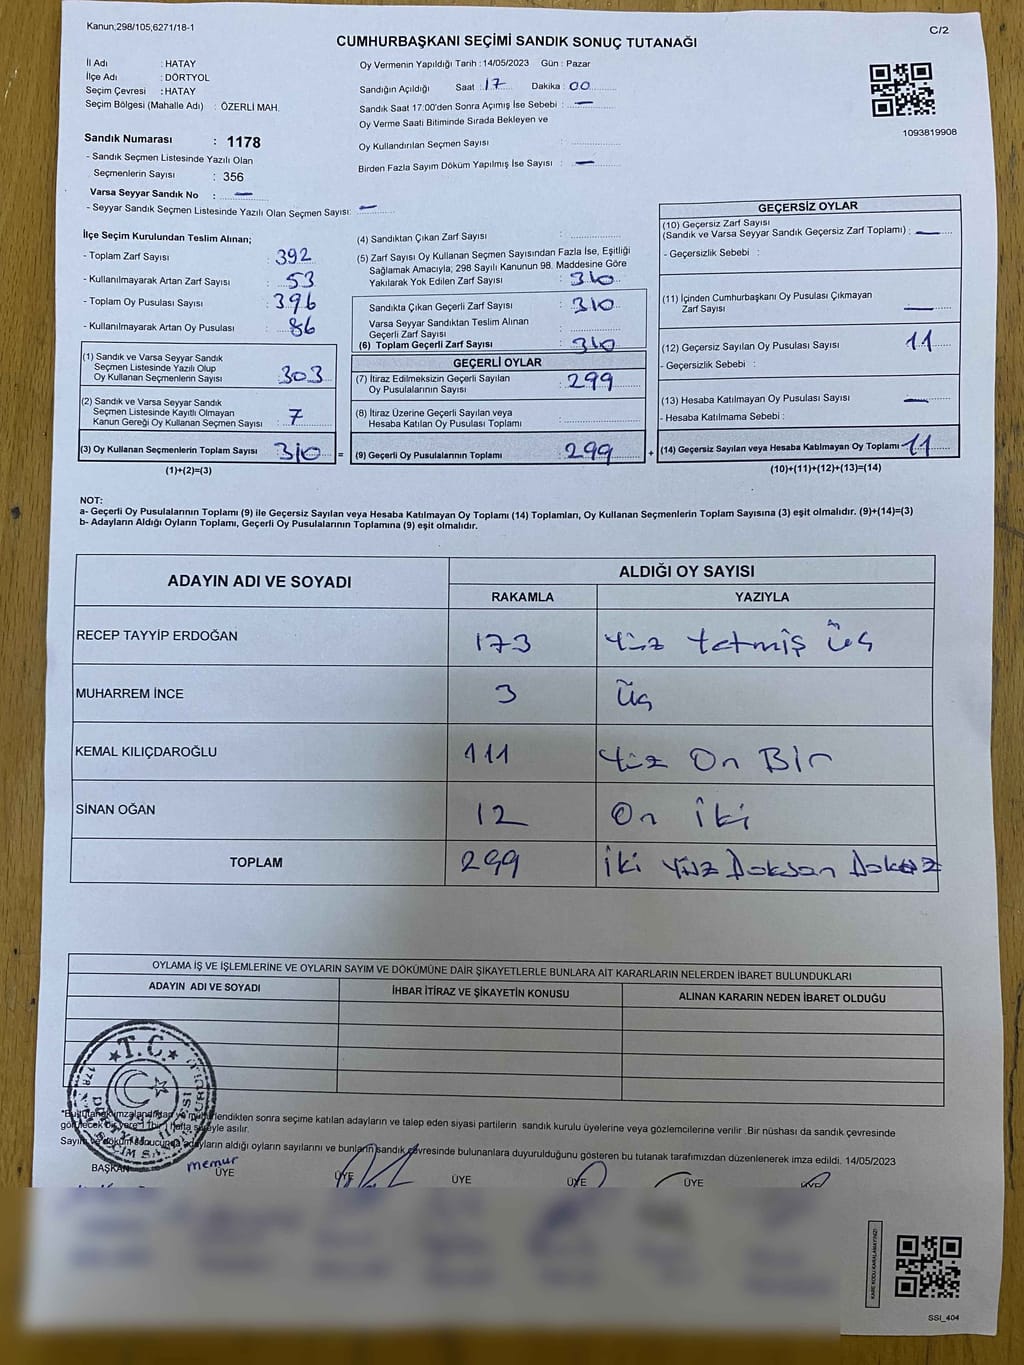 Kanun;298/105,6271/18-1
C/2
CUMHURBAŞKANI SEÇİMİ SANDIK SONUÇ TUTANAĞI
İl Adı : HATAY
İlçe Adı : DÖRTYOL
Seçim Çevresi : HATAY
Seçim Bölgesi (Mahalle Adı) : ÖZERLİ MAH.
Oy Vermenin Yapıldığı Tarih : 14/05/2023 Gün : Pazar
Sandığın Açıldığı Saat : 17 Dakika : 00
Sandık Saat 17:00'den Sonra Açımış İse Sebebi : —
Oy Verme Saati Bitiminde Sırada Bekleyen ve
Oy Kullandırılan Seçmen Sayısı :
Birden Fazla Sayım Döküm Yapılmış İse Sayısı : —
1093819908
Sandık Numarası : 1178
- Sandık Seçmen Listesinde Yazılı Olan
Seçmenlerin Sayısı : 356
Varsa Seyyar Sandık No : —
- Seyyar Sandık Seçmen Listesinde Yazılı Olan Seçmen Sayısı: —
İlçe Seçim Kurulundan Teslim Alınan;
- Toplam Zarf Sayısı : 392
- Kullanılmayarak Artan Zarf Sayısı : 53
- Toplam Oy Pusulası Sayısı : 396
- Kullanılmayarak Artan Oy Pusulası : 86
(1) Sandık ve Varsa Seyyar Sandık
Seçmen Listesinde Yazılı Olup
Oy Kullanan Seçmenlerin Sayısı : 303
(2) Sandık ve Varsa Seyyar Sandık
Seçmen Listesinde Kayıtlı Olmayan
Kanun Gereği Oy Kullanan Seçmen Sayısı : 7
(3) Oy Kullanan Seçmenlerin Toplam Sayısı : 310
(1)+(2)=(3)
=
(4) Sandıktan Çıkan Zarf Sayısı :
(5) Zarf Sayısı Oy Kullanan Seçmen Sayısından Fazla İse, Eşitliği
Sağlamak Amacıyla; 298 Sayılı Kanunun 98. Maddesine Göre
Yakılarak Yok Edilen Zarf Sayısı : 310
Sandıkta Çıkan Geçerli Zarf Sayısı : 310
Varsa Seyyar Sandıktan Teslim Alınan
Geçerli Zarf Sayısı :
(6) Toplam Geçerli Zarf Sayısı : 310
GEÇERLİ OYLAR
(7) İtiraz Edilmeksizin Geçerli Sayılan
Oy Pusulalarının Sayısı : 299
(8) İtiraz Üzerine Geçerli Sayılan veya
Hesaba Katılan Oy Pusulası Toplamı :
(9) Geçerli Oy Pusulalarının Toplamı : 299
+
GEÇERSİZ OYLAR
(10) Geçersiz Zarf Sayısı
(Sandık ve Varsa Seyyar Sandık Geçersiz Zarf Toplamı) : —
- Geçersizlik Sebebi :
(11) İçinden Cumhurbaşkanı Oy Pusulası Çıkmayan
Zarf Sayısı : —
(12) Geçersiz Sayılan Oy Pusulası Sayısı : 11
- Geçersizlik Sebebi :
(13) Hesaba Katılmayan Oy Pusulası Sayısı : —
- Hesaba Katılmama Sebebi :
(14) Geçersiz Sayılan veya Hesaba Katılmayan Oy Toplamı : 11
(10)+(11)+(12)+(13)=(14)
NOT:
a- Geçerli Oy Pusulalarının Toplamı (9) ile Geçersiz Sayılan veya Hesaba Katılmayan Oy Toplamı (14) Toplamları, Oy Kullanan Seçmenlerin Toplam Sayısına (3) eşit olmalıdır. (9)+(14)=(3)
b- Adayların Aldığı Oyların Toplamı, Geçerli Oy Pusulalarının Toplamına (9) eşit olmalıdır.
ADAYIN ADI VE SOYADI ALDIĞI OY SAYISI
RAKAMLA YAZIYLA
RECEP TAYYİP ERDOĞAN 173 Yüz Yetmiş Üç
MUHARREM İNCE 3 Üç
KEMAL KILIÇDAROĞLU 111 Yüz On Bir
SİNAN OĞAN 12 On iki
TOPLAM 299 iki Yüz Doksan Dokuz
OYLAMA İŞ VE İŞLEMLERİNE VE OYLARIN SAYIM VE DÖKÜMÜNE DAİR ŞİKAYETLERLE BUNLARA AİT KARARLARIN NELERDEN İBARET BULUNDUKLARI
ADAYIN ADI VE SOYADI İHBAR İTİRAZ VE ŞİKAYETİN KONUSU ALINAN KARARIN NEDEN İBARET OLDUĞU
T.C.
*Bu tutanak imzalandıktan ve mühürlendikten sonra seçime katılan adayların ve talep eden siyasi partilerin sandık kurulu üyelerine veya gözlemcilerine verilir. Bir nüshası da sandık çevresinde
görülecek bir yere 1 (bir) hafta süreyle asılır.
Sayım ve döküm sonucunda adayların aldığı oyların sayılarını ve bunların sandık çevresinde bulunanlara duyurulduğunu gösteren bu tutanak tarafımızdan düzenlenerek imza edildi. 14/05/2023
BAŞKAN memur ÜYE ÜYE ÜYE ÜYE ÜYE ÜYE
KARE KODU KARALAMAYINIZ!
SSI_404